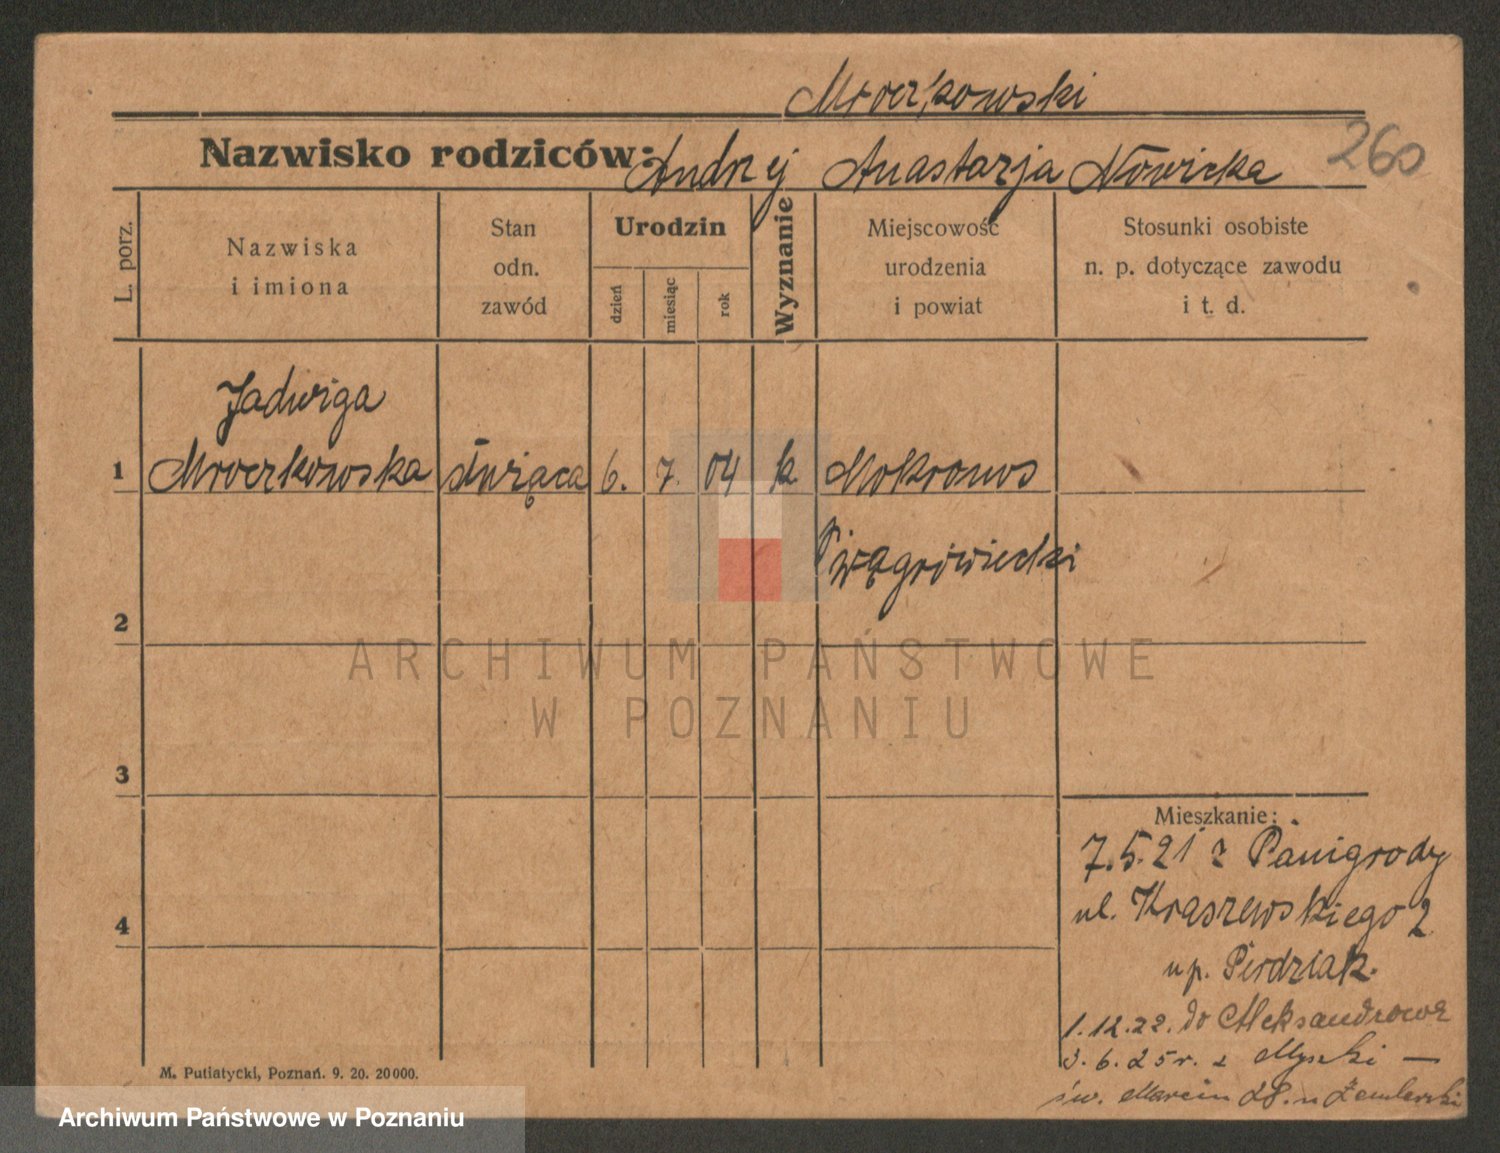 Mroczkowski
Nazwisko rodziców: Andrzej Anastazja Nowicka
260
L. porz.
Nazwiska
i imiona
Stan
odn.
zawód
Urodzin
dzień
miesiąc
rok
Wyznanie
Miejscowość
urodzenia
i powiat
Stosunki osobiste
n. p. dotyczące zawodu
i t. d.
Jadwiga
1 Mroczkowska służąca 6. 7. 04 k Mokronos
p. wągrowiecki
2
ARCHIWUM PAŃSTWOWE
W POZNANIU
3
Mieszkanie:
7.5.21 z Panigrody
ul. Kraszewskiego 2
4
up. Pierdziak.
1.12.22. do Aleksandrowa
3.6.25 r. z Myszki —
św. Marcin 28. u
M. Putiatycki, Poznań. 9. 20. 20000.
Archiwum Państwowe w Poznaniu